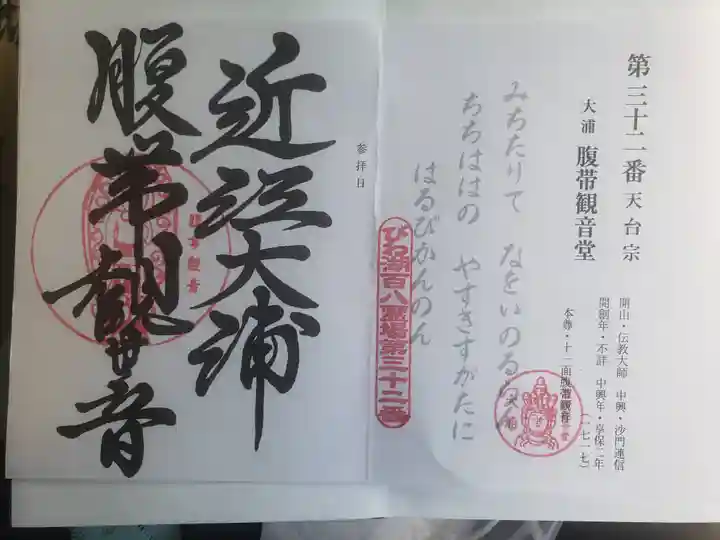 第三十二番 天台宗
大浦 腹帯観音堂
開山・伝教大師 中興・沙門連信
開創年・不詳 中興年・享保二年
(一七一七)
本尊・十一面腹帯観音
みちたりて なをいのるらん
ちちははの やすきすがたに
はるびかんのん
びわ湖百八霊場第三十二番
参拝日
近江大浦
腹帯観世音